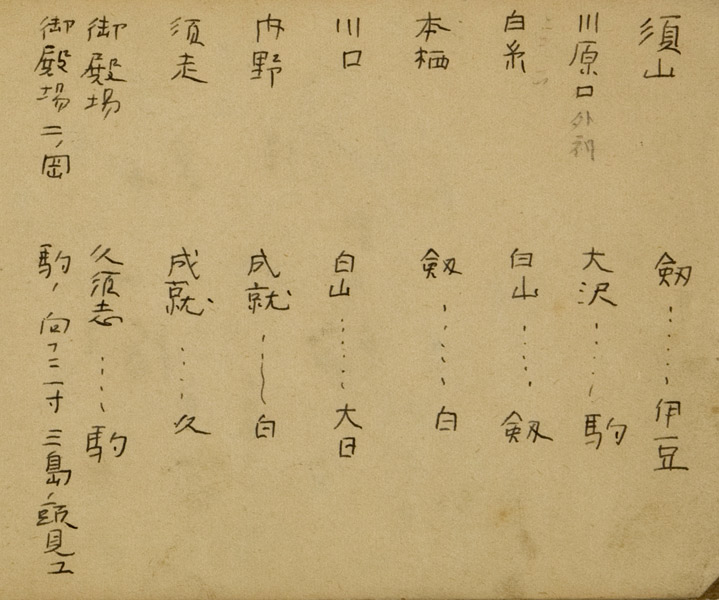 須山　劔……伊豆
川原口　大沢……駒
白糸　白山……劔
本栖　劔……白
川口　白山……大日
内野　成就……白
須走　成就……久
御殿場　久須志……駒
御殿場二ノ岡　駒ノ向フニ一寸三島ノ頭見ユ